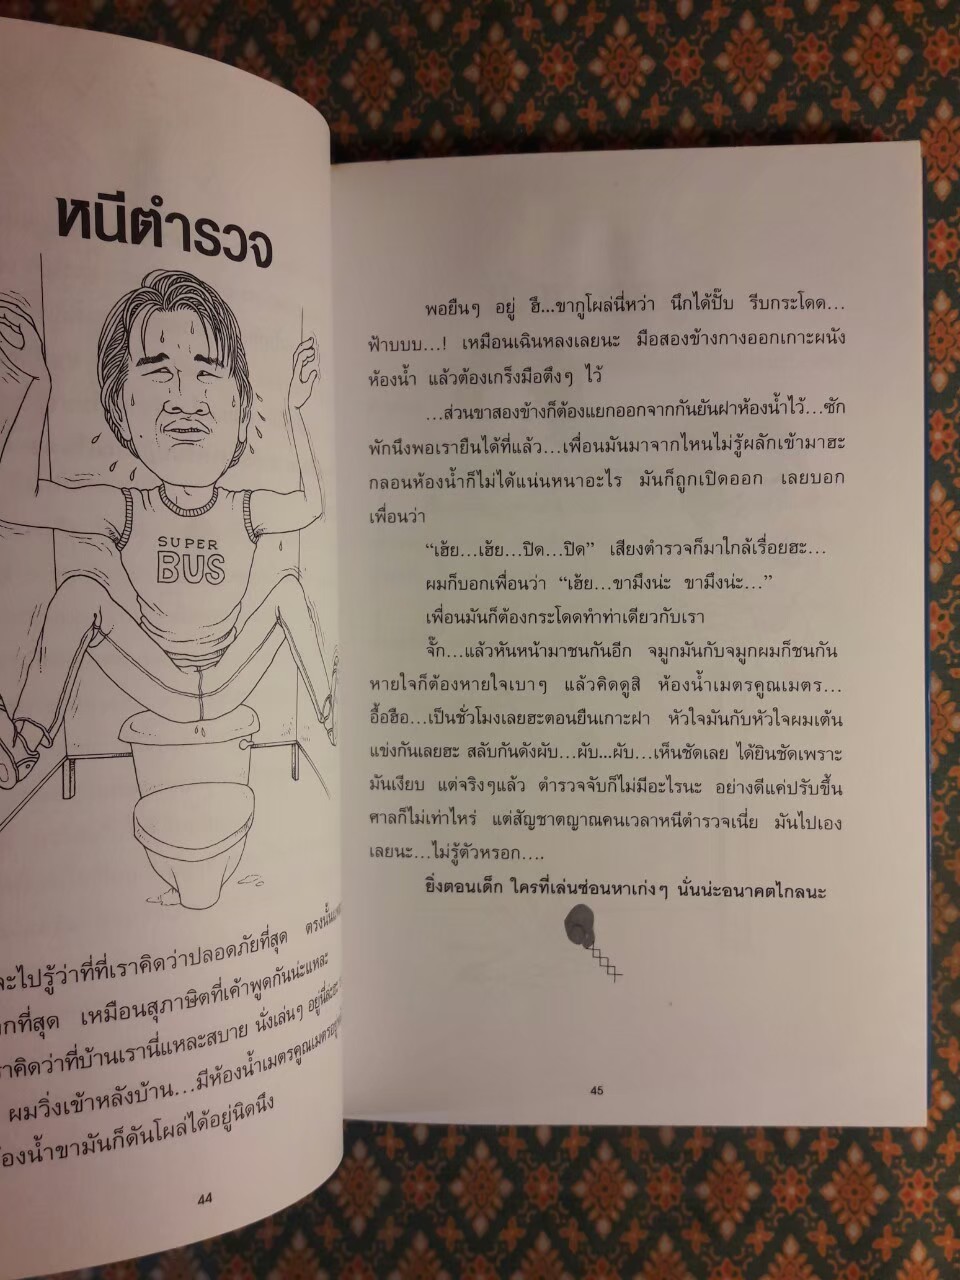 หนีตำรวจ
SUPER
BUS
ละไปรู้ว่าที่ที่เราคิดว่าปลอดภัยที่สุด
กที่สุด เหมือนสุภาษิตที่เค้าพูดกันน่ะแหละ
ราคิดว่าที่บ้านเรานี่แหละสบาย นั่งเล่นๆ
ผมวิ่งเข้าหลังบ้าน...มีห้องน้ำเมตรคูณเมตร
องน้ำขามันก็ดันโผล่ได้อยู่นิดนึง
44
พอยืนๆ อยู่ ฮึ...ขากูโผล่นี่หว่า นึกได้ปั๊บ รีบกระโดด...
ฟ้าบบบ...! เหมือนเฉินหลงเลยนะ มือสองข้างกางออกเกาะผนัง
ห้องน้ำ แล้วต้องเกร็งมือตึงๆ ไว้
...ส่วนขาสองข้างก็ต้องแยกออกจากกันยันฝาห้องน้ำไว้...ซัก
พักนึงพอเรายืนได้ที่แล้ว...เพื่อนมันมาจากไหนไม่รู้ผลักเข้ามาฮะ
กลอนห้องน้ำก็ไม่ได้แน่นหนาอะไร มันก็ถูกเปิดออก เลยบอก
เพื่อนว่า
“เฮ้ย...เฮ้ย...ปิด...ปิด” เสียงตำรวจก็มาใกล้เรื่อยฮะ...
ผมก็บอกเพื่อนว่า “เฮ้ย...ขามึงน่ะ ขามึงน่ะ...”
เพื่อนมันก็ต้องกระโดดทำท่าเดียวกับเรา
จั๊ก...แล้วหันหน้ามาชนกันอีก จมูกมันกับจมูกผมก็ชนกัน
หายใจก็ต้องหายใจเบาๆ แล้วคิดดูสิ ห้องน้ำเมตรคูณเมตร...
อื้อฮือ...เป็นชั่วโมงเลยฮะตอนยืนเกาะฝา หัวใจมันกับหัวใจผมเต้น
แข่งกันเลยฮะ สลับกันดังผับ...ผับ...ผับ...เห็นชัดเลย ได้ยินชัดเพราะ
มันเงียบ แต่จริงๆแล้ว ตำรวจจับก็ไม่มีอะไรนะ อย่างดีแค่ปรับขึ้น
ศาลก็ไม่เท่าไหร่ แต่สัญชาตญาณคนเวลาหนีตำรวจเนี่ย มันไปเอง
เลยนะ...ไม่รู้ตัวหรอก....
ยิ่งตอนเด็ก ใครที่เล่นซ่อนหาเก่งๆ นั่นน่ะอนาคตไกลนะ
45